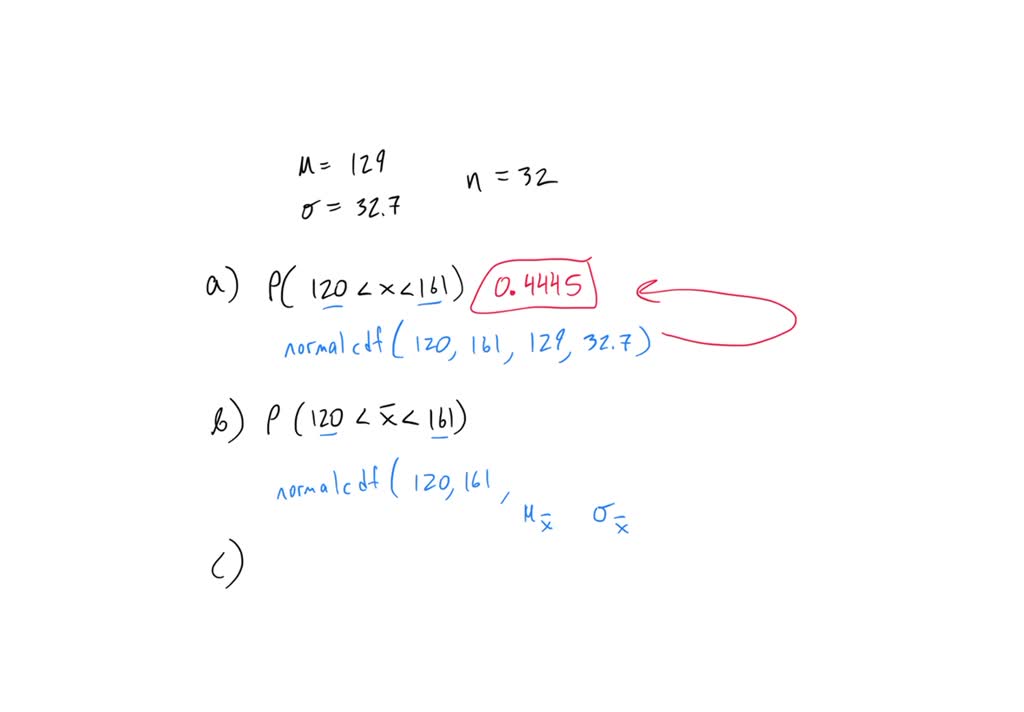 μ = 129
n = 32
σ = 32.7
a) P( 120 < x < 161) 0.4445
normalcdf( 120, 161, 129, 32.7)
b) P (120 < x̄ < 161)
normalcdf( 120, 161,
μx̄ σx̄
c)